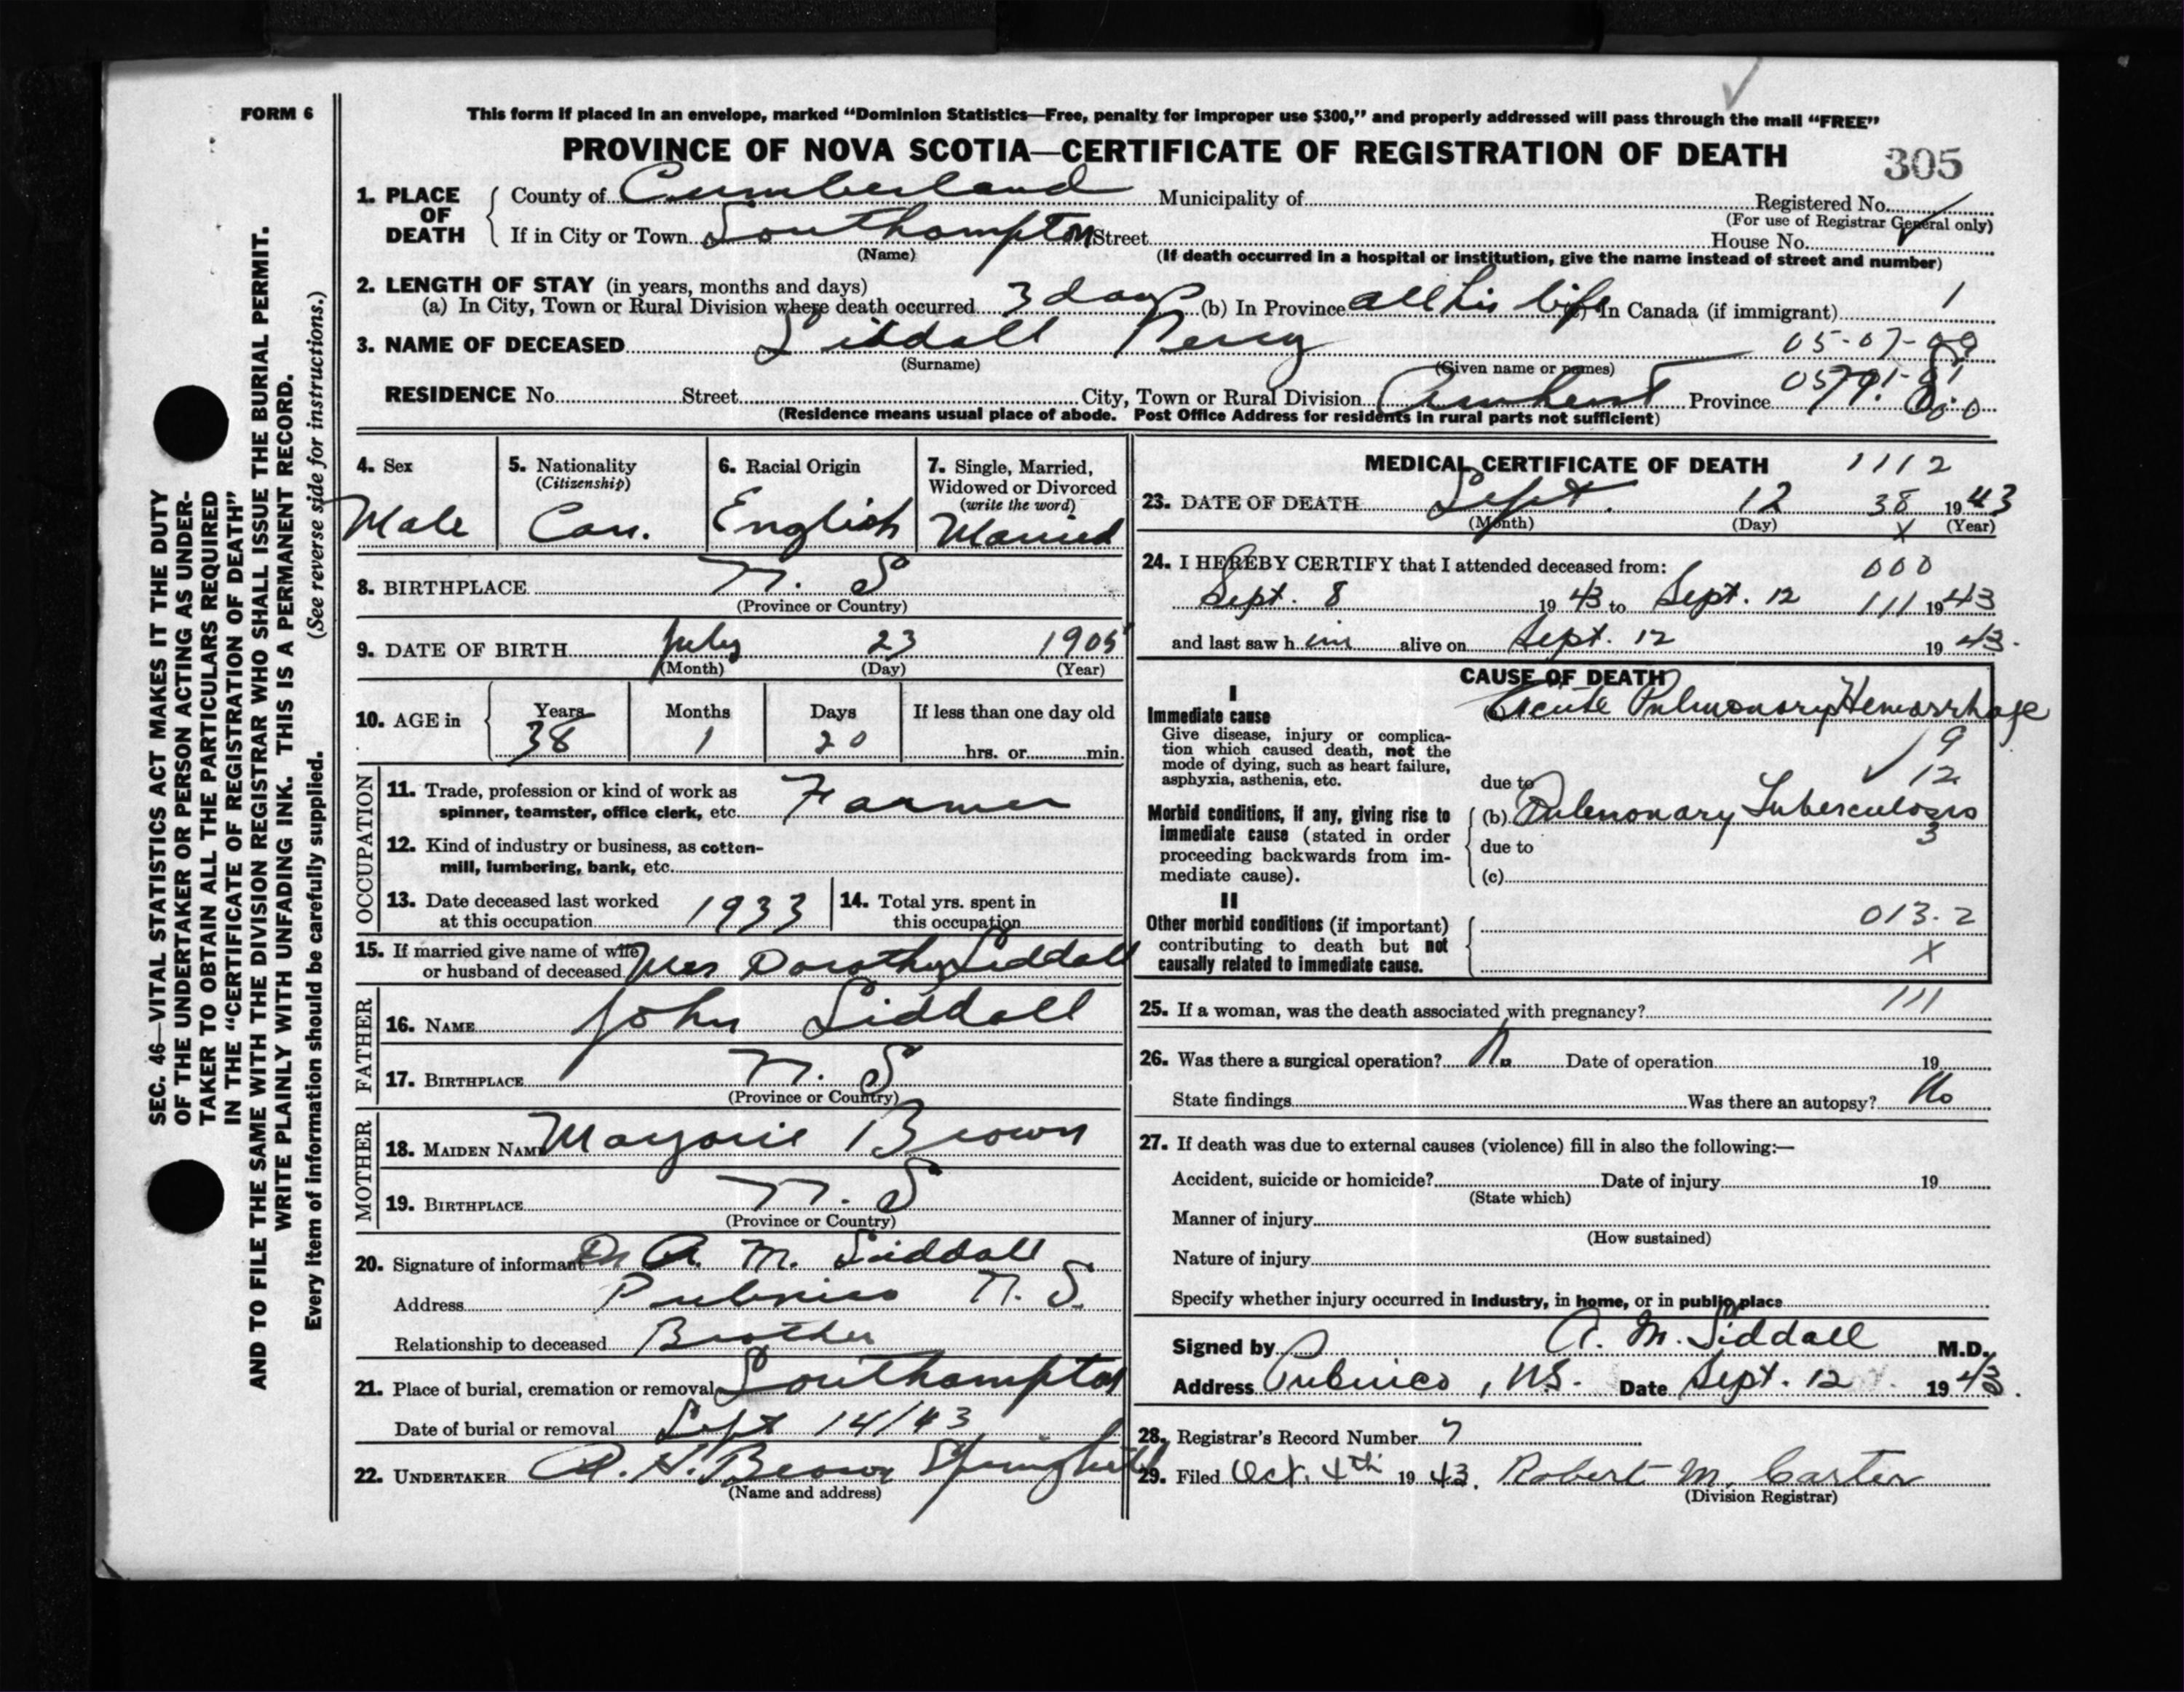 FORM 6
This form if placed in an envelope, marked “Dominion Statistics—Free, penalty for improper use $300,” and properly addressed will pass through the mail “FREE”
PROVINCE OF NOVA SCOTIA—CERTIFICATE OF REGISTRATION OF DEATH
305
1. PLACE OF DEATH County of Cumberland Municipality of Registered No.
(For use of Registrar General only)
If in City or Town Southampton Street House No.
(Name) (If death occurred in a hospital or institution, give the name instead of street and number)
2. LENGTH OF STAY (in years, months and days)
(a) In City, Town or Rural Division where death occurred 3 days (b) In Province all his life In Canada (if immigrant) 1
3. NAME OF DECEASED Siddall Percy 05-07-
(Surname) (Given name or names)
RESIDENCE No. Street City, Town or Rural Division Amherst Province
(Residence means usual place of abode. Post Office Address for residents in rural parts not sufficient)
4. Sex Male
5. Nationality (Citizenship) Can.
6. Racial Origin English
7. Single, Married, Widowed or Divorced (write the word) Married
8. BIRTHPLACE N. S
(Province or Country)
9. DATE OF BIRTH July 23 1905
(Month) (Day) (Year)
10. AGE in Years Months Days If less than one day old
38 1 20 hrs. or min.
OCCUPATION
11. Trade, profession or kind of work as
spinner, teamster, office clerk, etc. Farmer
12. Kind of industry or business, as cotton-
mill, lumbering, bank, etc.
13. Date deceased last worked
at this occupation 1933
14. Total yrs. spent in
this occupation
15. If married give name of wife
or husband of deceased Mrs Dorothy Siddall
FATHER
16. NAME John Siddall
17. BIRTHPLACE N. S
(Province or Country)
MOTHER
18. MAIDEN NAME Marjorie Brown
19. BIRTHPLACE N. S
(Province or Country)
20. Signature of informant Dr A. M. Siddall
Address Pubnico N. S.
Relationship to deceased Brother
21. Place of burial, cremation or removal Southampton
Date of burial or removal Sept 14/43
22. UNDERTAKER A. H. Brown Springhill
(Name and address)
MEDICAL CERTIFICATE OF DEATH 1112
23. DATE OF DEATH Sept. 12 38 1943
(Month) (Day) X (Year)
24. I HEREBY CERTIFY that I attended deceased from: 000
Sept. 8 1943 to Sept. 12 111 1943
and last saw him alive on Sept. 12 1943.
CAUSE OF DEATH
I
Immediate cause Acute Pulmonary Hemorrhage
Give disease, injury or complica-
tion which caused death, not the
mode of dying, such as heart failure,
asphyxia, asthenia, etc.
9
due to 12
Morbid conditions, if any, giving rise to
immediate cause (stated in order
proceeding backwards from im-
mediate cause).
(b) Pulmonary Tuberculosis
due to 3
(c)
II
Other morbid conditions (if important)
contributing to death but not
causally related to immediate cause.
013.2
X
25. If a woman, was the death associated with pregnancy? 111
26. Was there a surgical operation? No Date of operation 19
State findings Was there an autopsy? No
27. If death was due to external causes (violence) fill in also the following:—
Accident, suicide or homicide? Date of injury 19
(State which)
Manner of injury
(How sustained)
Nature of injury
Specify whether injury occurred in industry, in home, or in public place
Signed by A. M. Siddall M.D.
Address Pubnico, N.S. Date Sept. 12 1943.
28. Registrar's Record Number 7
29. Filed Oct. 4th 1943. Robert M. Carter
(Division Registrar)
SEC. 46—VITAL STATISTICS ACT MAKES IT THE DUTY
OF THE UNDERTAKER OR PERSON ACTING AS UNDER-
TAKER TO OBTAIN ALL THE PARTICULARS REQUIRED
IN THE “CERTIFICATE OF REGISTRATION OF DEATH”
AND TO FILE THE SAME WITH THE DIVISION REGISTRAR WHO SHALL ISSUE THE BURIAL PERMIT.
WRITE PLAINLY WITH UNFADING INK. THIS IS A PERMANENT RECORD.
Every item of information should be carefully supplied. (See reverse side for instructions.)